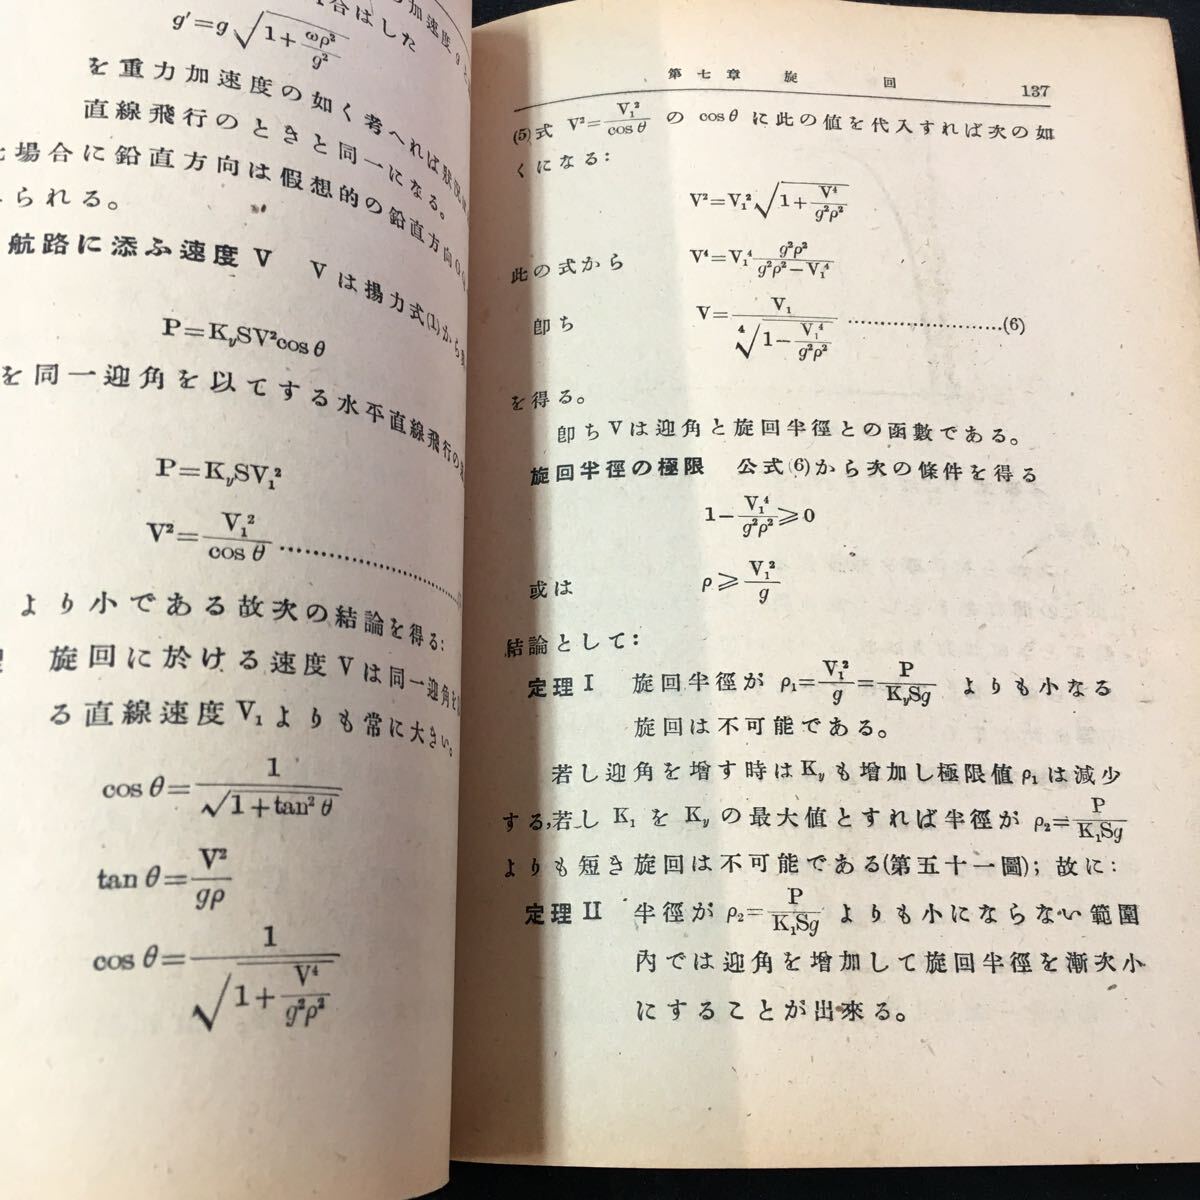 加速度 g
合はした
g′=g√(1+ωρ²/g²)
を重力加速度の如く考へれば狀況
直線飛行のときと同一になる。
場合に鉛直方向は假想的の鉛直方向
られる。
航路に添ふ速度 V V は揚力式(1)から
P=KySV²cos θ
を同一迎角を以てする水平直線飛行の
P=KySV₁²
V²=V₁²/cos θ
より小である故次の結論を得る:
旋回に於ける速度 V は同一迎角を
る直線速度 V₁ よりも常に大きい。
cos θ=1/√(1+tan² θ)
tan θ=V²/gρ
cos θ=1/√(1+V⁴/g²ρ²)
第七章 旋回 137
(5)式 V²=V₁²/cos θ の cos θ に此の値を代入すれば次の如
くになる:
V²=V₁²√(1+V⁴/g²ρ²)
此の式から V⁴=V₁⁴ g²ρ²/(g²ρ²−V₁⁴)
卽ち V=V₁/⁴√(1−V₁⁴/g²ρ²) ……………………(6)
を得る。
卽ち V は迎角と旋回半徑との函數である。
旋回半徑の極限 公式(6)から次の條件を得る
1−V₁⁴/g²ρ²≥0
或は ρ≥V₁²/g
結論として:
定理 I 旋回半徑が ρ₁=V₁²/g=P/KySg よりも小なる
旋回は不可能である。
若し迎角を增す時は Ky も增加し極限値 ρ₁ は減少
する,若し K₁ を Ky の最大値とすれば半徑が ρ₂=P/K₁Sg
よりも短き旋回は不可能である(第五十一圖); 故に:
定理 II 半徑が ρ₂=P/K₁Sg よりも小にならない範圍
內では迎角を增加して旋回半徑を漸次小
にすることが出來る。